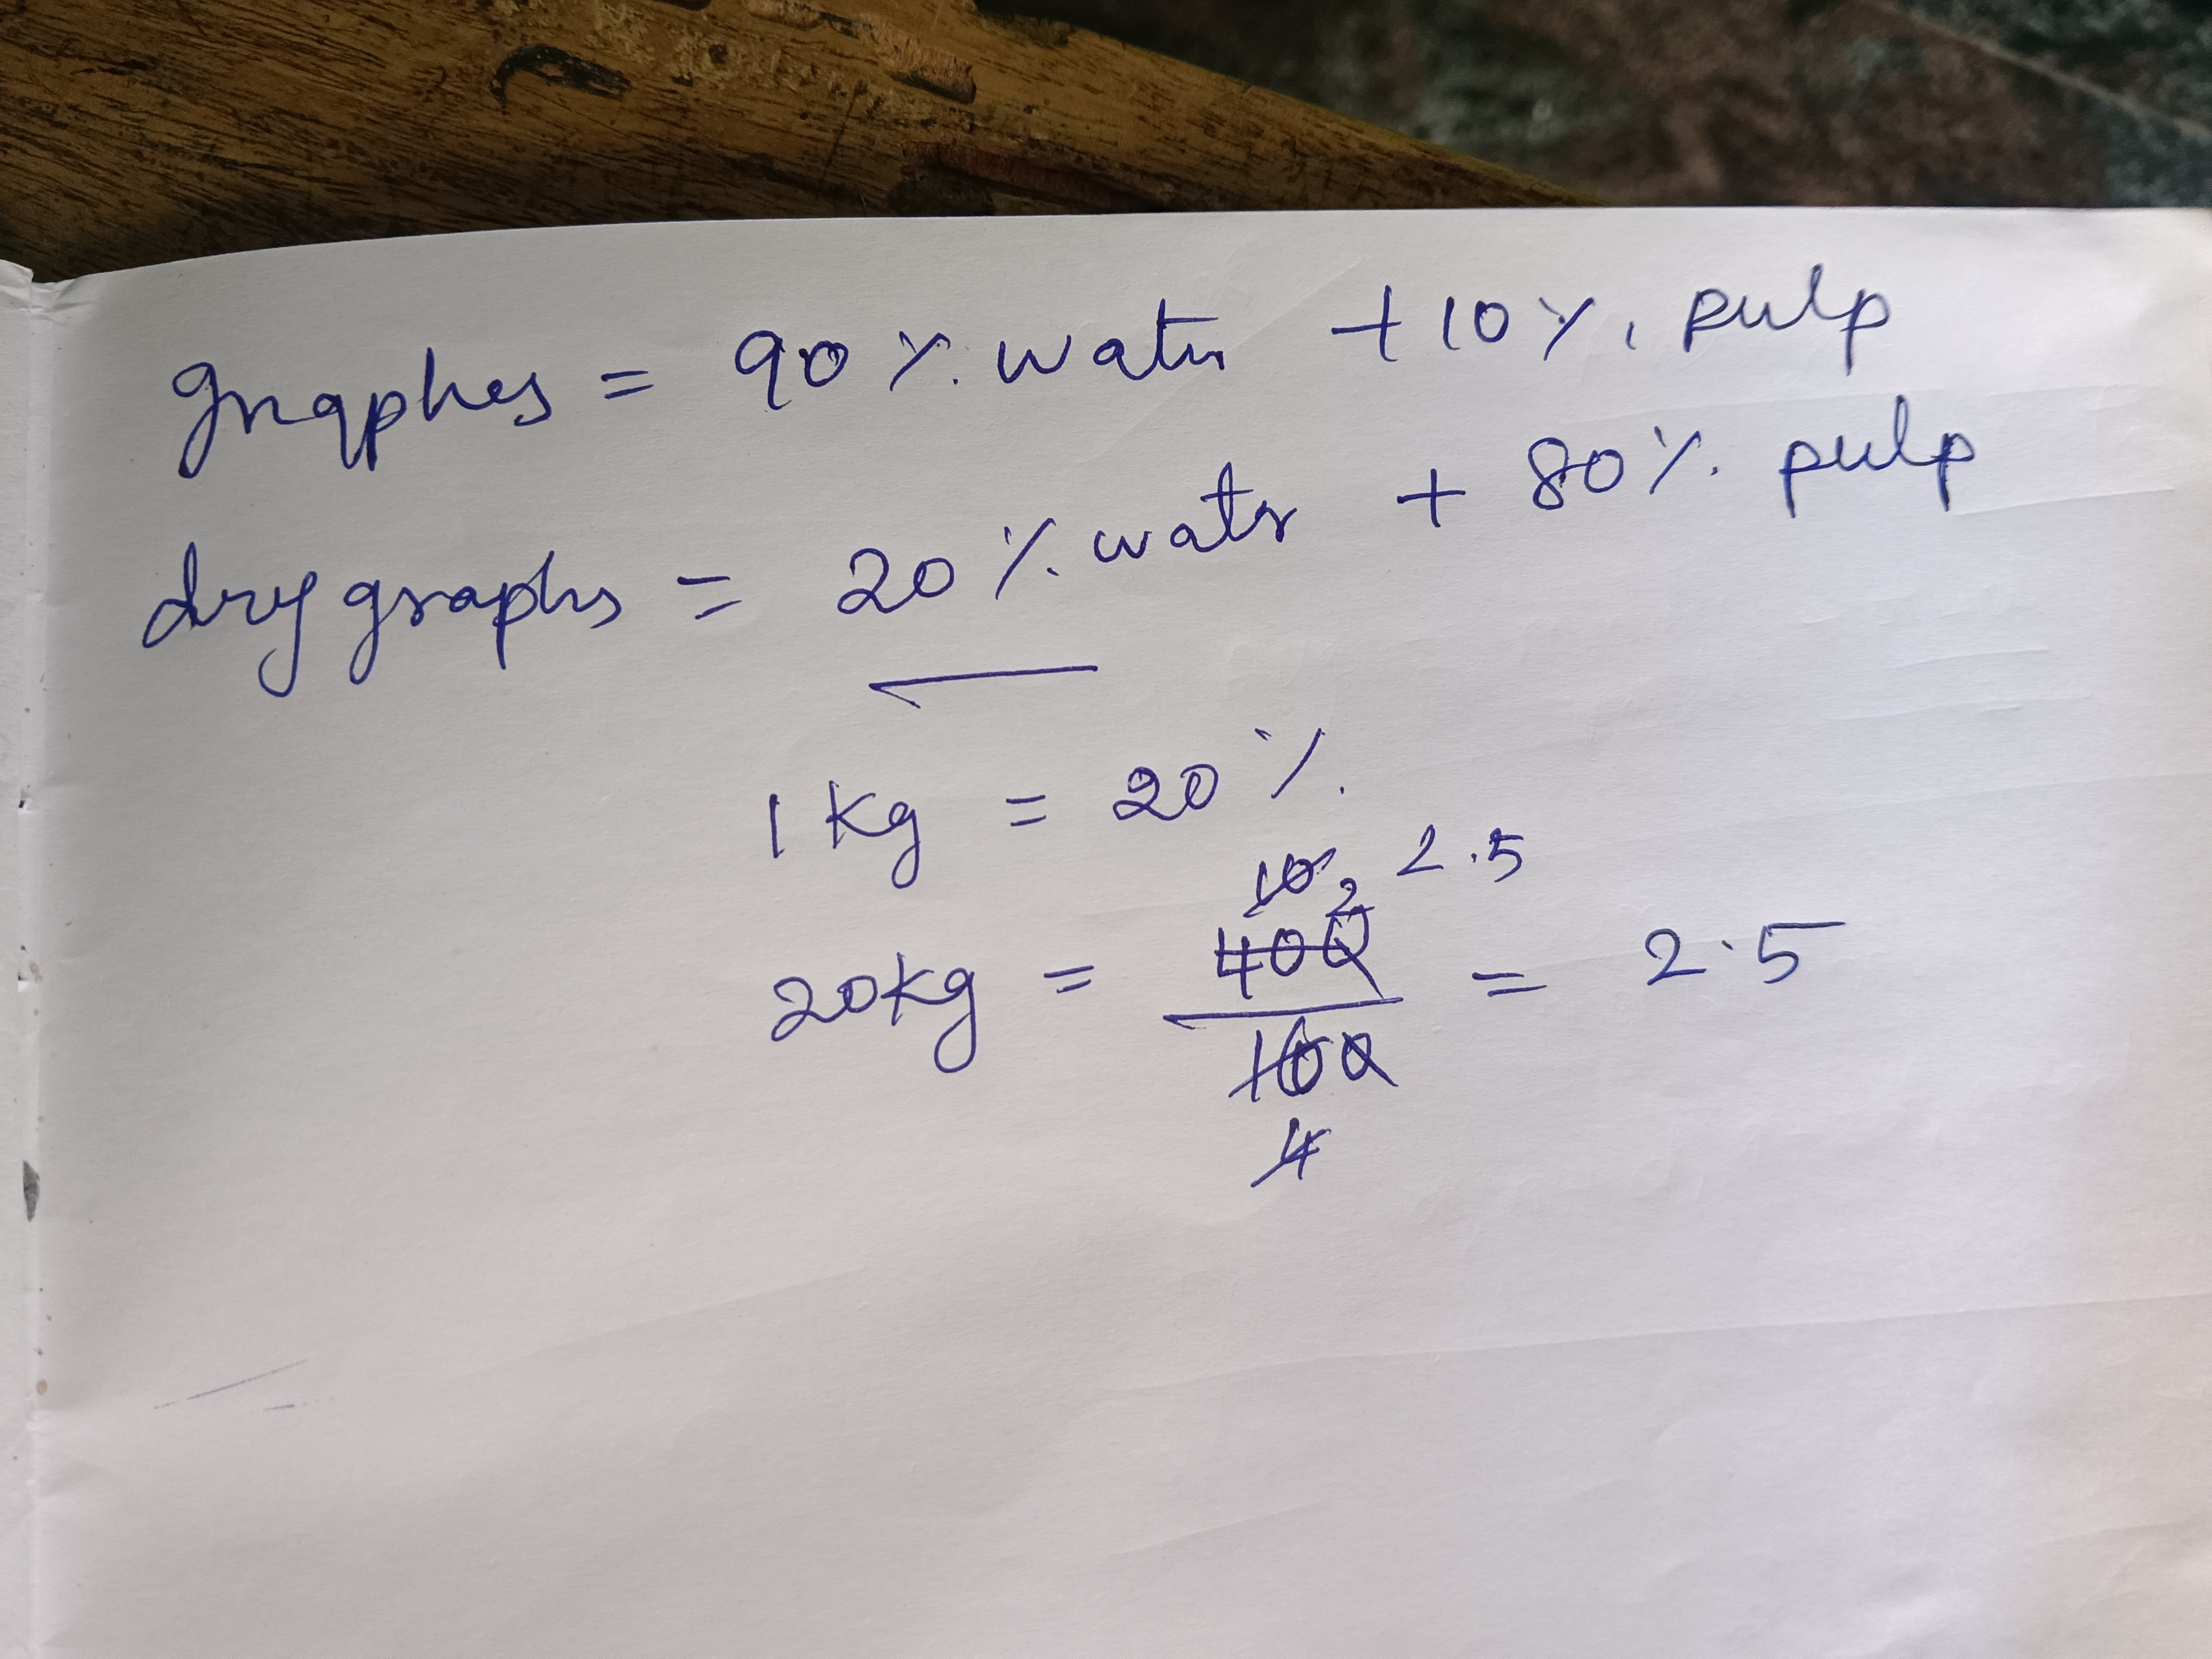 graphes = 90 %. water + 10 %. pulp
dry graphs = 20 %. watr + 80 %. pulp
1 kg = 20 %.
10 2 2.5
20kg = 400 / 100 = 2.5
4